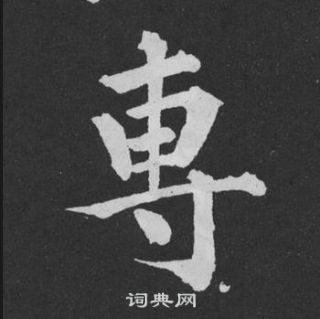 専
词典网